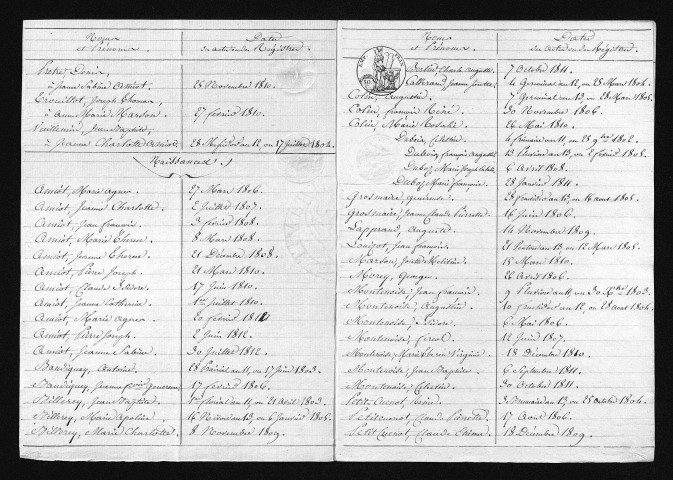 Noms et Prénoms
Date des actes ou des Registres
à Jeanne Sabine Amiot. 26 Novembre 1810.
Trouillot, Joseph Thomas,
à Anne Marie Marson. 27 février 1810.
Vuillemin, Jean Baptiste,
à Jeanne Charlotte Amiot. 28 Messidor an 12, ou 17 Juillet 1804.
Naissances
Amiot, Marie Agnes. 27 Mars 1806.
Amiot, Jeanne Charlotte. 2 Juillet 1807.
Amiot, Jean François. 3 février 1808.
Amiot, Marie Therese. 8 Mars 1808.
Amiot, Jeanne Therese. 21 Décembre 1808.
Amiot, Pierre Joseph. 21 Mars 1810.
Amiot, Claude Isidore. 17 Juin 1810.
Amiot, Jeanne Catherine. 1er Juillet 1810.
Amiot, Marie Agnes. 20 février 1812
Amiot, Pierre Joseph. 2 Juin 1812.
Amiot, Jeanne Sabine. 30 Juillet 1812.
Baudiquey, Antoine. 28 Prairial an 11, ou 17 Juin 1803.
Baudiquey, Jeanne 17 février 1806.
Billerey, Jean Baptiste. 1er floréal an 11, ou 21 Avril 1803.
Billerey, Marie 16 Nivose an 13, ou 6 Janvier 1805.
Billerey, Marie Charlotte. 8 Novembre 1809.
Noms et Prénoms
Date des actes ou des Registres
Charles Auguste. 7 Octobre 1811.
Jeanne 4 Germinal an 12, ou 25 Mars 1804.
Colin, Augustin. 7 Germinal an 13, ou 28 Mars 1805.
Colin, François Réné. 30 Novembre 1806.
Colin, Marie Rosalie. 26 Mai 1810.
Célestin. 4 frimaire an 11, ou 25 9bre 1802.
Dubois, François Auguste. 13 Pluviose an 13, ou 2 février 1805.
Duboz, Marie Joseph 6 Avril 1808.
Duboz, Marie Françoise. 28 Janvier 1811.
Grosmaire, 28 Thermidor an 13, ou 16 août 1805.
Grosmaire, Jeanne Claude Pierrette. 16 Juin 1806.
Lapprand, Auguste. 14 Novembre 1809.
Jean François. 21 Ventose an 13, ou 12 Mars 1805.
Marson, 15 Mars 1810.
Morey, George. 26 Avril 1806.
Montenoise, Jean François. 9 Pluviose an 11, ou 30 1803.
Montenoise, Augustin. 10 fructidor an 12, ou 28 août 1804.
Montenoise, 6 Mai 1806.
Montenoise, 12 Juin 1807.
Montenoise, Marie Thérèse Virginie. 18 Décembre 1810.
Montenoise, Jean Baptiste. 6 Septembre 1811.
Montenoise, Célestin. 30 Octobre 1811.
Petit Cuenot, Réné. 3 Brumaire an 13, ou 25 Octobre 1804.
Petit Cuenot, Claude Pierrette. 17 Août 1806.
Petit Cuenot, Claude Etienne. 18 Décembre 1809.